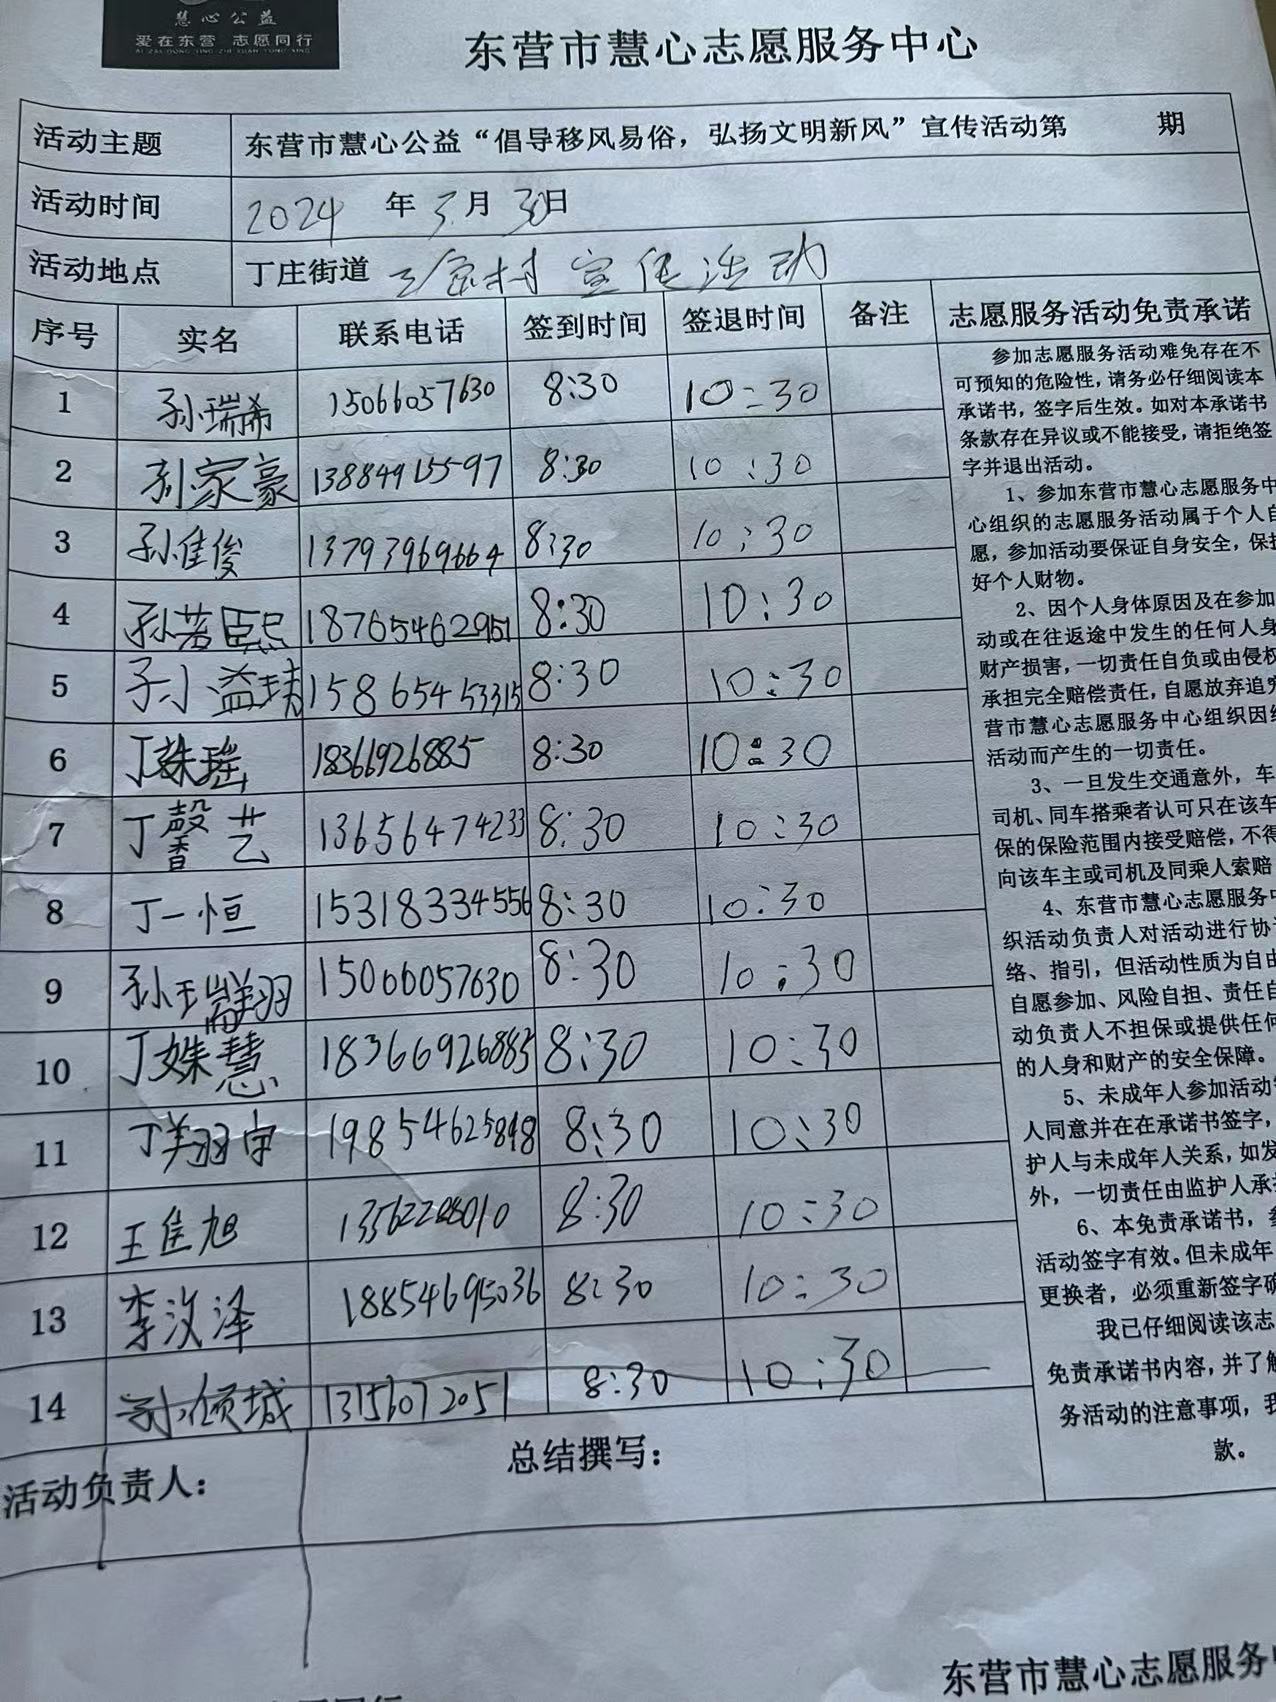 慧心公益
爱在东营 志愿同行
东营市慧心志愿服务中心
活动主题 东营市慧心公益“倡导移风易俗，弘扬文明新风”宣传活动第 期
活动时间 2024 年 3 月 30 日
活动地点 丁庄街道 村 宣传活动
序号 实名 联系电话 签到时间 签退时间 备注 志愿服务活动免责承诺
1 孙瑞希 15066057630 8:30 10:30
2 孙家豪 13884915597 8:30 10:30
3 孙佳俊 13793969664 8:30 10:30
4 孙若熙 18765462951 8:30 10:30
5 孙益 15865453315 8:30 10:30
6 丁姝瑶 18366926885 8:30 10:30
7 丁馨艺 13656474233 8:30 10:30
8 丁一恒 15318334556 8:30 10:30
9 孙瑞翔 15066057630 8:30 10:30
10 丁姝慧 18366926885 8:30 10:30
11 丁翔宇 19854625898 8:30 10:30
12 王佳旭 8:30 10:30
13 李汶泽 18854695036 8:30 10:30
14 孙倾城 13156072051 8:30 10:30
活动负责人： 总结撰写：
参加志愿服务活动难免存在不
可预知的危险性，请务必仔细阅读本
承诺书，签字后生效。如对本承诺书
条款存在异议或不能接受，请拒绝签
字并退出活动。
1、参加东营市慧心志愿服务中
心组织的志愿服务活动属于个人自
愿，参加活动要保证自身安全，保护
好个人财物。
2、因个人身体原因及在参加
动或在往返途中发生的任何人身
财产损害，一切责任自负或由侵权
承担完全赔偿责任，自愿放弃追究
营市慧心志愿服务中心组织因组
活动而产生的一切责任。
3、一旦发生交通意外，车
司机、同车搭乘者认可只在该车
保的保险范围内接受赔偿，不得
向该车主或司机及同乘人索赔
4、东营市慧心志愿服务中
织活动负责人对活动进行协
络、指引，但活动性质为自由
自愿参加、风险自担、责任自
动负责人不担保或提供任何
的人身和财产的安全保障。
5、未成年人参加活动
人同意并在在承诺书签字，
护人与未成年人关系，如发
外，一切责任由监护人承担
6、本免责承诺书，参
活动签字有效。但未成年
更换者，必须重新签字确
我已仔细阅读该志
免责承诺书内容，并了解
务活动的注意事项，我
款。
东营市慧心志愿服务中